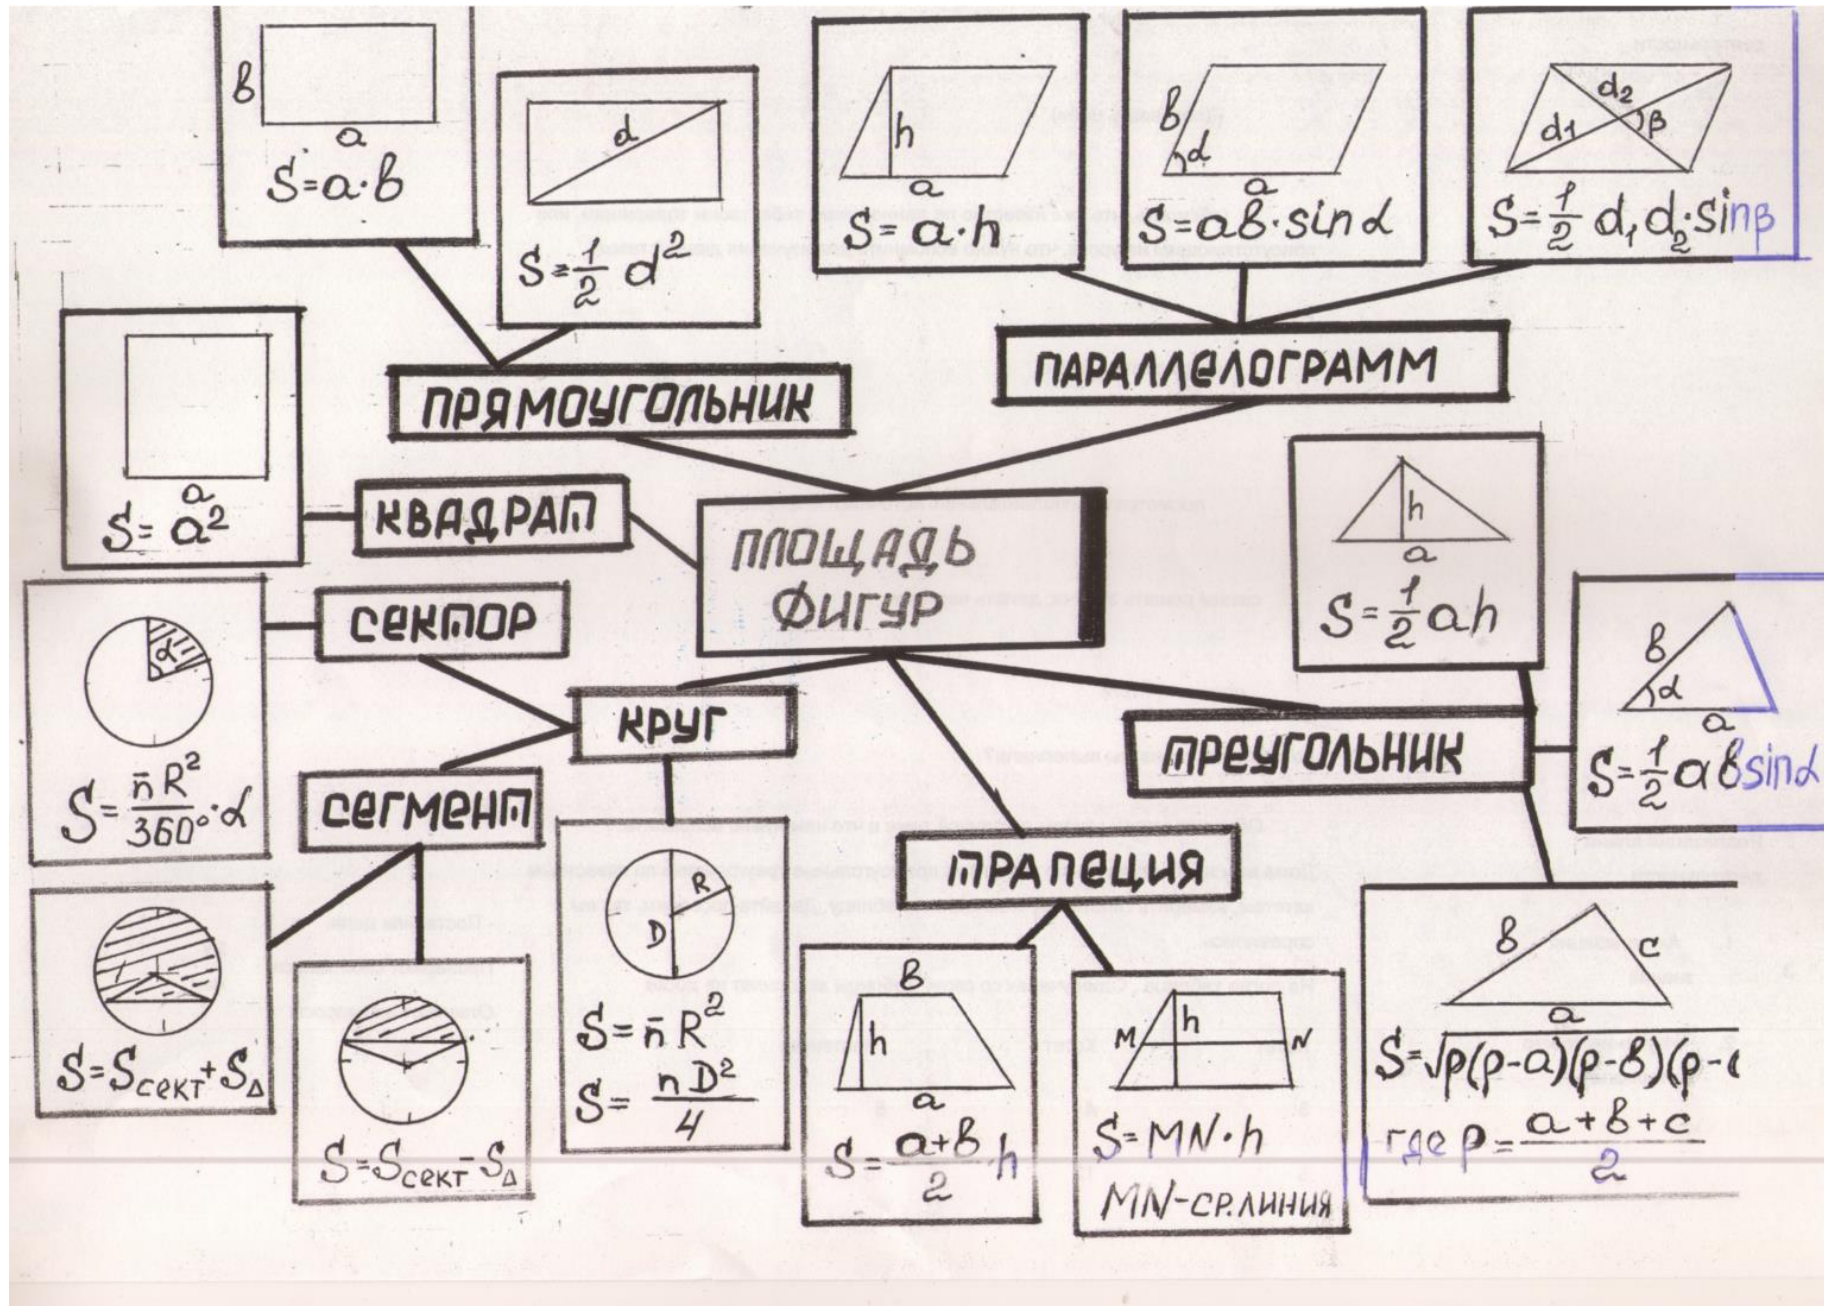 в
a
S=a·в
d
S=1/2 d²
h
a
S=a·h
в
α
a
S=aв·sinα
d2
d1
β
S=1/2 d₁d₂·sinβ
ПРЯМОУГОЛЬНИК
ПАРАЛЛЕЛОГРАММ
a
S=a²
КВАДРАТ
ПЛОЩАДЬ
ФИГУР
h
a
S=1/2ah
СЕКТОР
α
S=π R²/360°·α
КРУГ
ТРЕУГОЛЬНИК
в
α
a
S=1/2aвsinα
СЕГМЕНТ
ТРАПЕЦИЯ
S=Sсект+S∆
S=Sсект-S∆
R
D
S=π R²
S=πD²/4
в
h
a
S=a+в/2·h
M
h
N
S=MN·h
MN-СР.ЛИНИЯ
в
c
a
S=√p(p-a)(p-в)(p-
где p=a+в+c/2